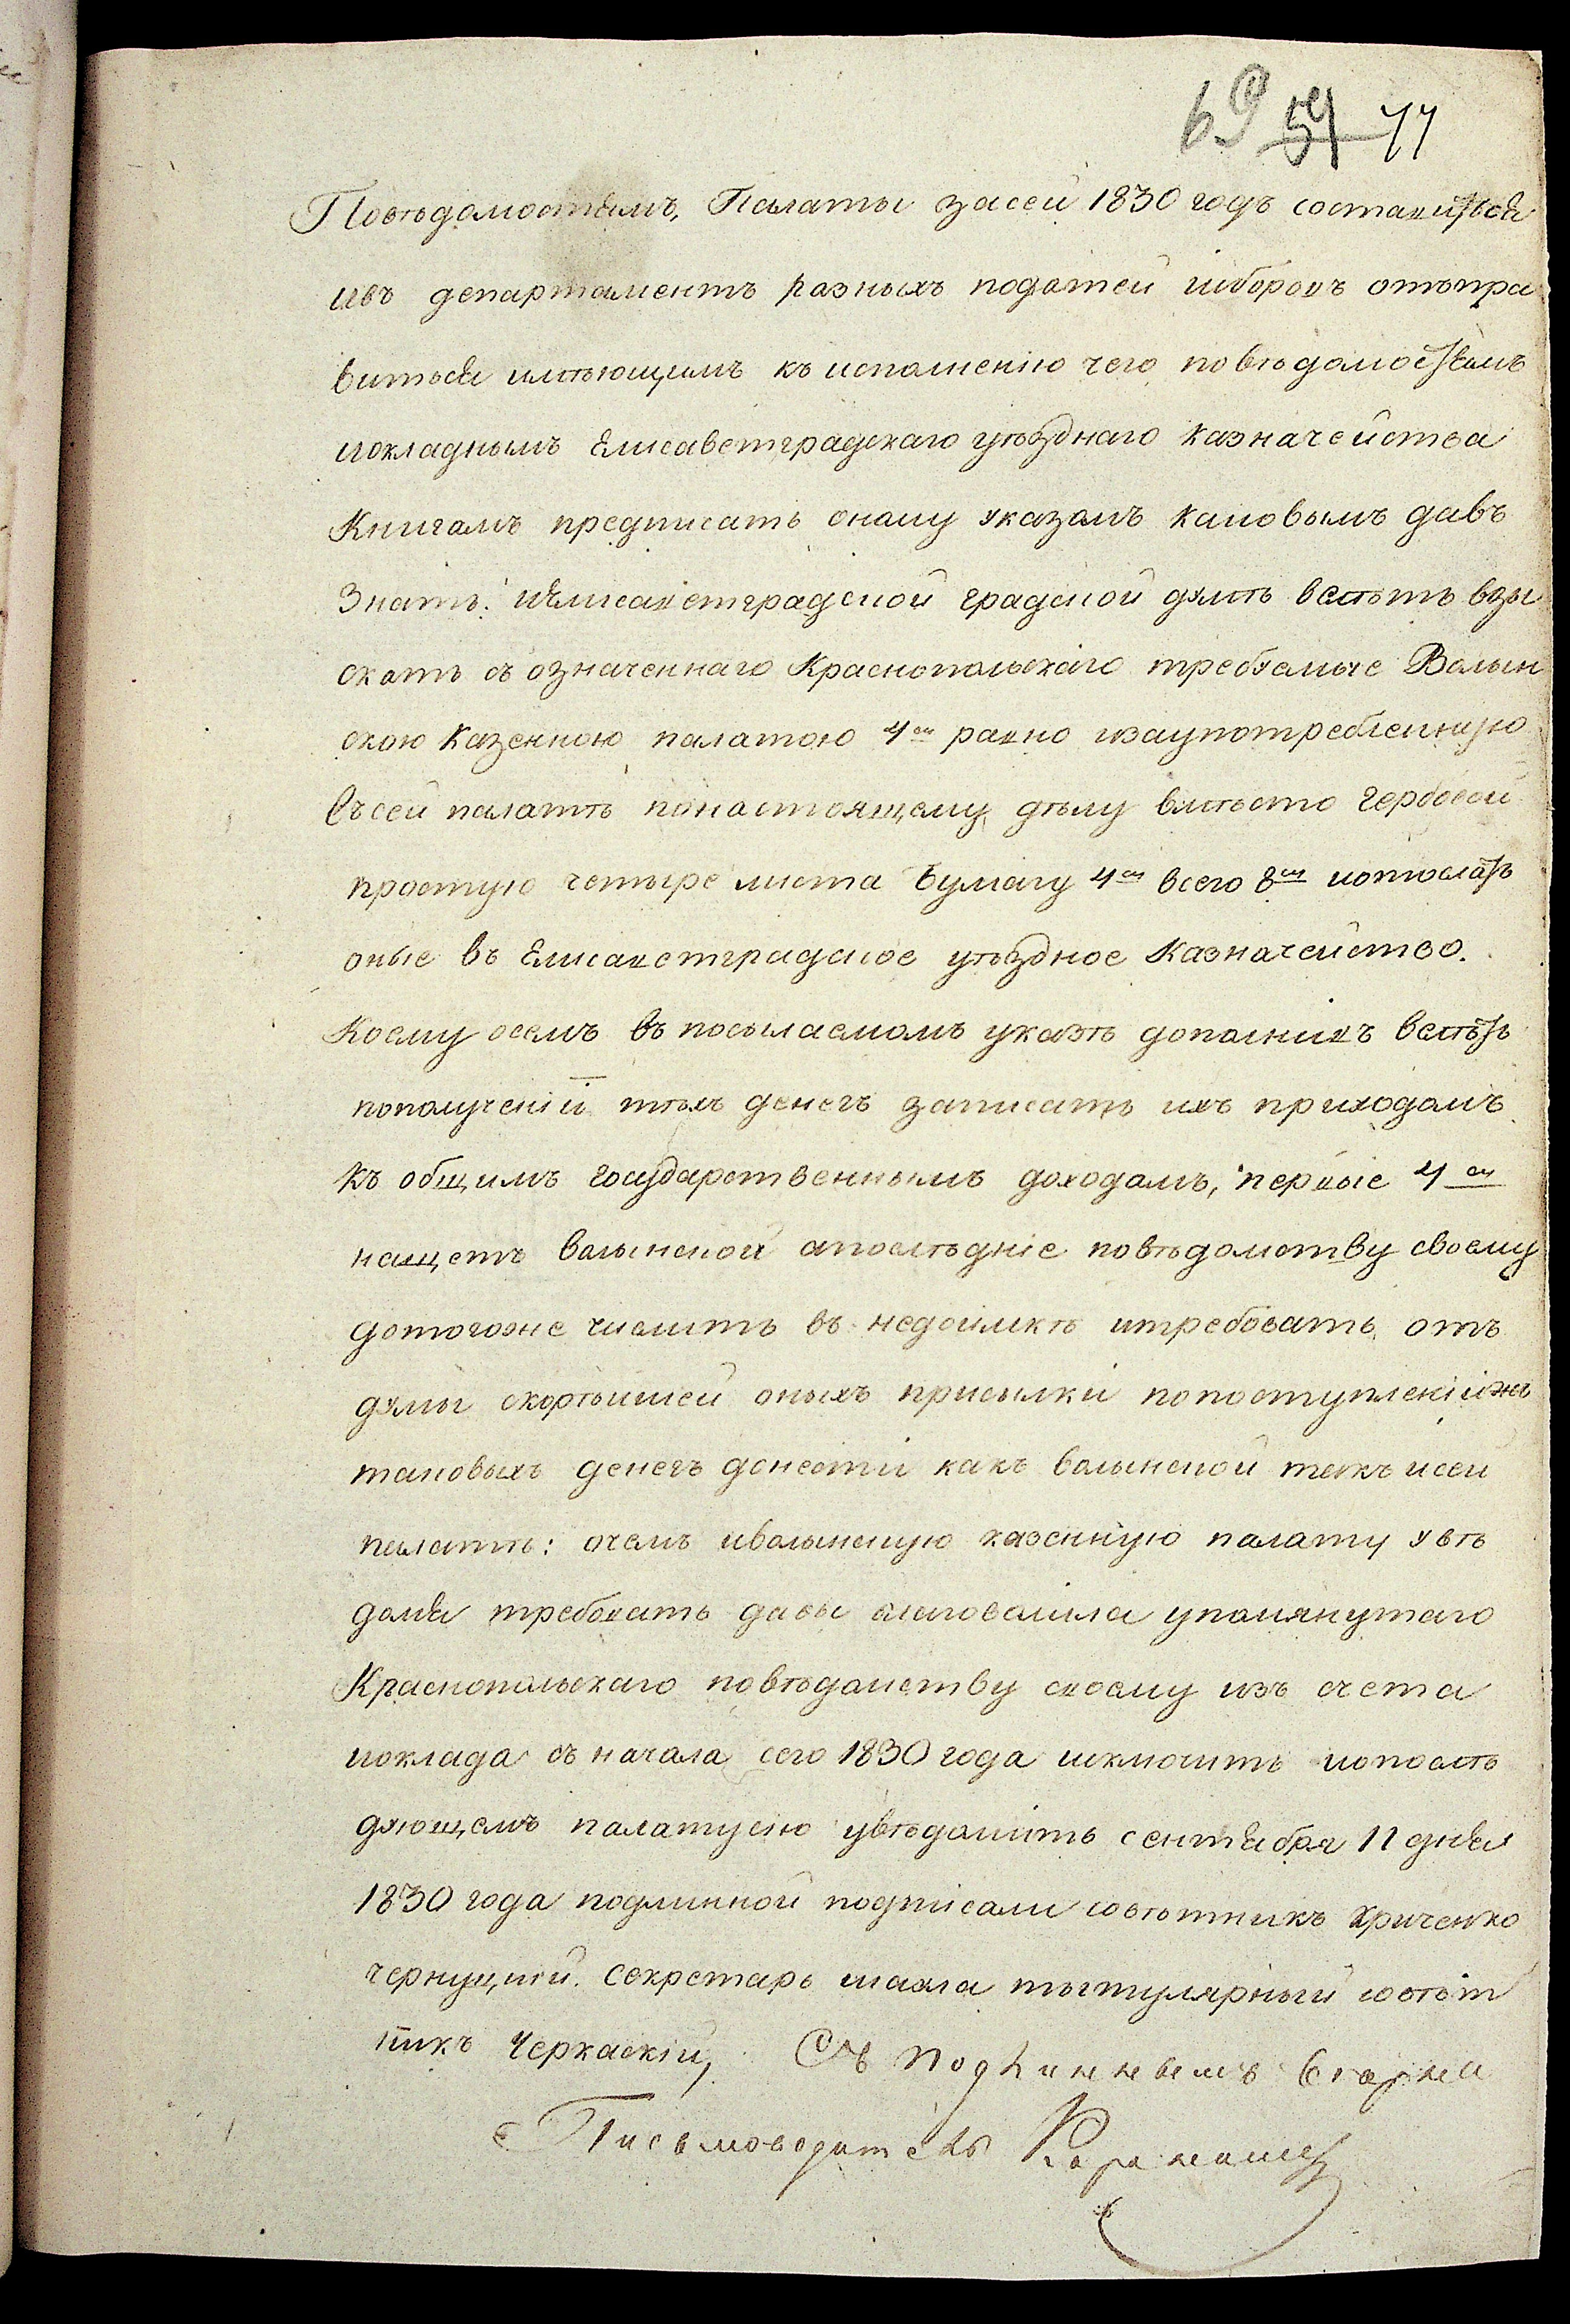 69 59 77
Повѣдомостямъ, Палаты засей 1830 годъ составиться
ивъ департаментъ разныхъ податей исборовъ отъпра
виться имѣющимъ къ исполненію чего повѣдомостямъ
иокладнымъ Елисаветградскаго уѣзднаго казначейства
Книгамъ предписать оному указомъ каковымъ давъ
Знать: иЕлисаветградской градской думѣ велѣть взы
скать съ означеннаго Краснопольскаго требуемые Волын
скою казенною палатою 4 ра равно изаупотребленную
Въсей палатѣ понастоящему дѣлу вмѣсто гербовой
простую четыре листа бумагу 4 всего 8 иотослать
оные въ Елисаветградское уѣздное казначейство.
Коему осемъ въ посылаемомъ указѣ дополнивъ велѣть
пополученіи тѣхъ денегъ записать ихъ приходомъ
къ общимъ государственнымъ доходамъ, первые 4
нащетъ волынской апослѣдніе повѣдомству своему
дотогоже числить въ недоимкѣ итребовать отъ
думы скорѣйшей оныхъ присылки попоступленіижъ
таковыхъ денегъ донести какъ волынской такъ исей
палатѣ: очемъ иволынскую казенную палату увѣ
домя требовать дабы благоволила упомянутаго
Краснопольскаго повѣдомству своему изъ счета
иоклада съ начала сего 1830 года исключить ипослѣ
дующемъ палатусію увѣдомить сентября 11 дня
1830 года подлинной подписали совѣтникъ Криченко
чернуцкій. секретарь шахла тытулярный совѣт
никъ Черкаскій, Съ Подлиннымъ вѣрно
Письмоводитель